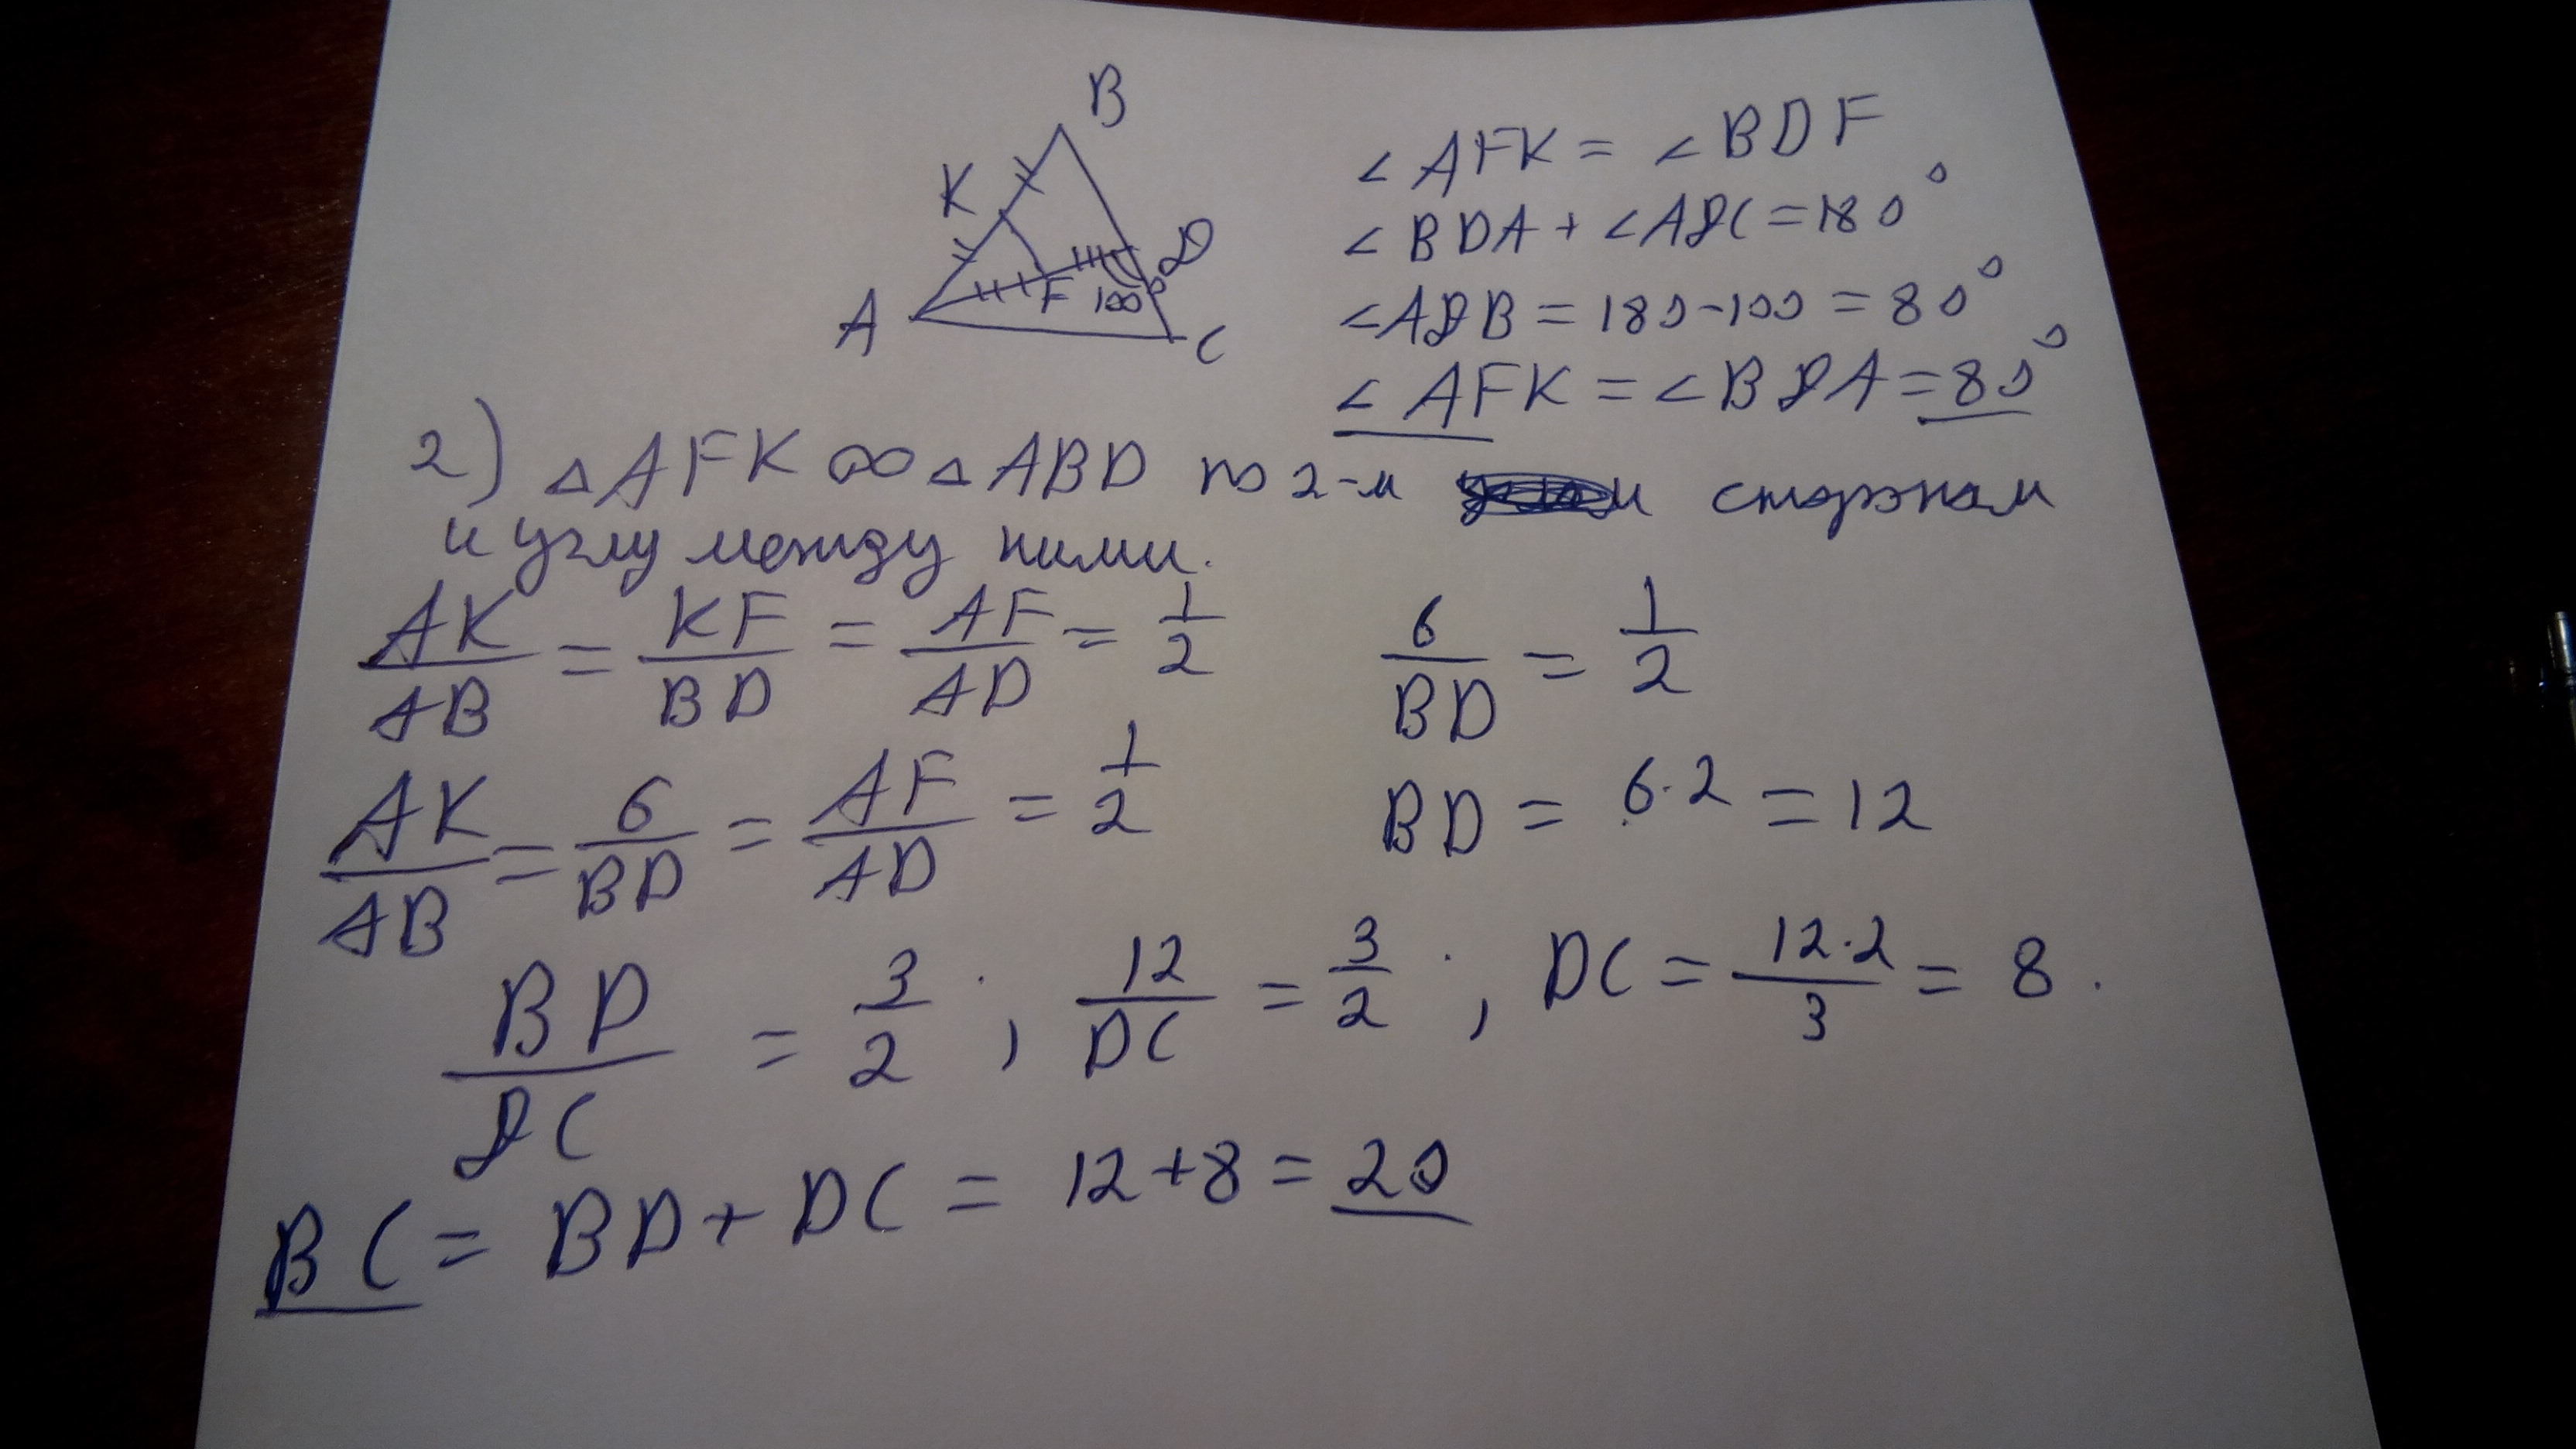 B
K
D
A
F
100°
C
∠AFK = ∠BDF
∠BDA + ∠ADC = 180°
∠ADB = 180-100 = 80°
∠AFK = ∠BDA = 80°
2) △AFK ∞ △ABD по 2-м сторонам
и углу между ними.
AK/AB = KF/BD = AF/AD = 1/2
6/BD = 1/2
AK/AB = 6/BD = AF/AD = 1/2
BD = 6·2 = 12
BD/DC = 3/2 ; 12/DC = 3/2 ; DC = 12·2/3 = 8.
BC = BD + DC = 12+8 = 20